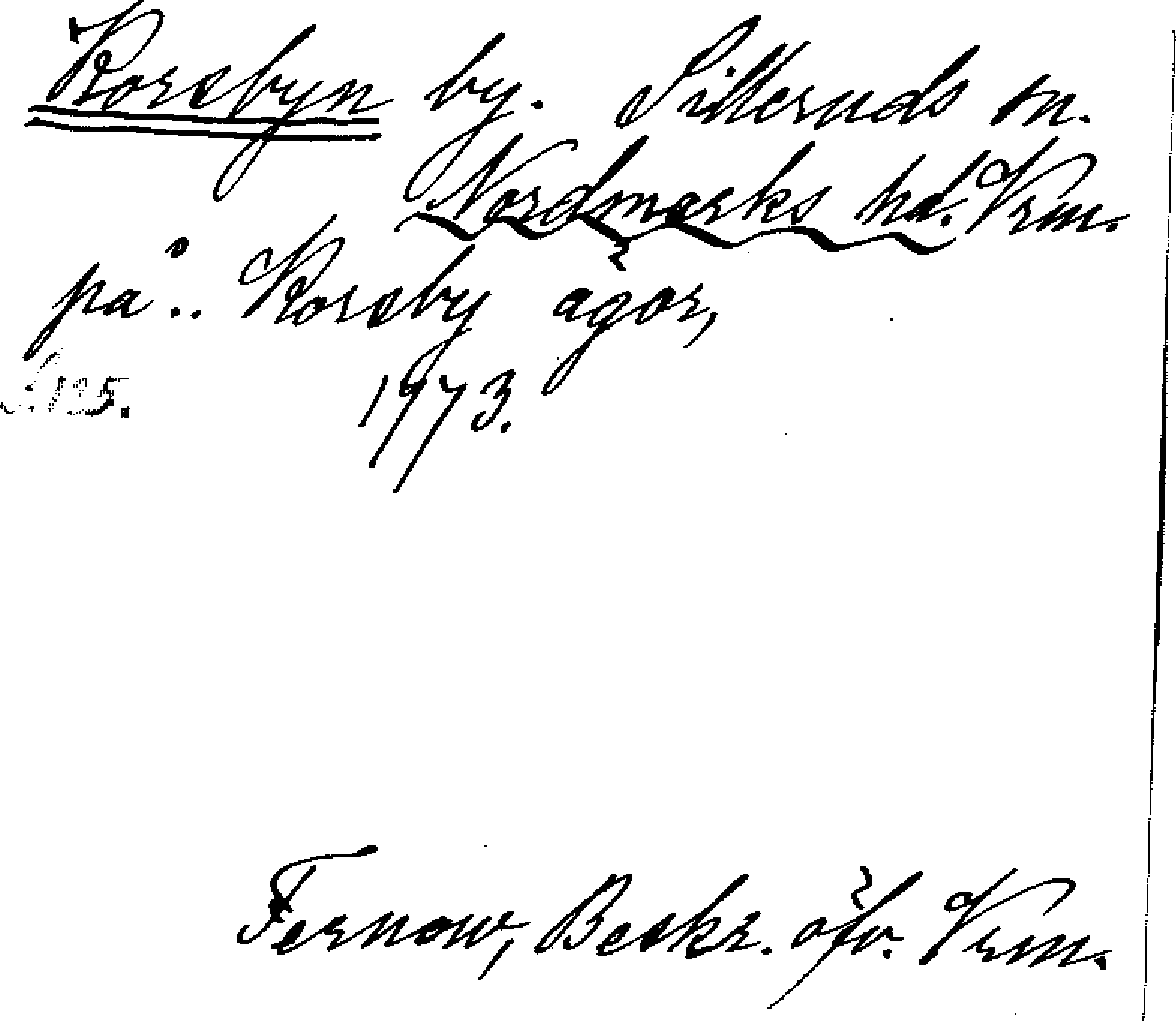 Korsbyn by. Silleruds sn.
Nordmarks hd. Vrm.
på .. Korsby ägor,
S. 125. 1773.
Fernow, Beskr. öfv. Vrm.